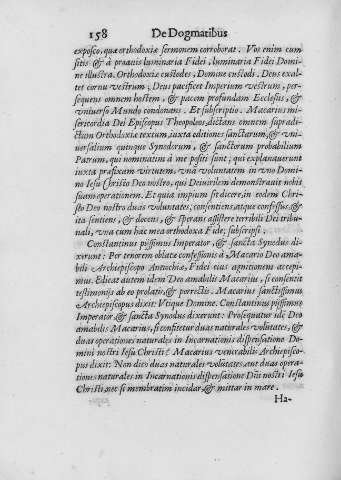 158 De Dogmatibus
exposco, quæ orthodoxiæ sermonem corroborat: Vos enim cum
sitis & à prauis luminaria Fidei, luminaria Fidei Domi-
ne illustra. Orthodoxiæ custodes, Domine custodi. Deus exal-
tet cornu vestrum; Deus pacificet Imperium vestrum, per-
sequens omnem hostem, & pacem profundam Ecclesiis, &
vniuerso Mundo condonans. Et subscriptio. Macarius mi-
sericordia Dei Episcopus Theopoleos, dictans omnem supradi-
ctum Orthodoxiæ textum, iuxta editiones sanctarum, & vni-
uersalium quinque Synodorum, & sanctorum probabilium
Patrum, qui nominatim à me positi sunt; qui explanauerunt
iuxta præfixam virtutem, vna voluntatem in vno Domi-
no Iesu Christo Deo nostro, qui Deiuirilem demonstrauit nobis
suam operationem. Et quia impium sit dicere, in eodem Chri-
sto Deo nostro duas voluntates, consentiens, atque confessus, &
ita sentiens, & docens, & sperans assistere terribili Dei tribu-
nali, vna cum hac mea orthodoxa Fide; subscripsi.
Constantinus piissimus Imperator, & sancta Synodus di-
xerunt: Per tenorem oblatæ confessionis à Macario Deo ama-
bili Archiepiscopo Antiochiæ, Fidei eius agnitionem accepi-
mus. Edicat autem idem Deo amabilis Macarius, si consentit
testimonijs ab eo prolatis, & porrectis. Macarius sanctissimus
Archiepiscopus dixit: Vtique Domine. Constantinus piissimus
Imperator, & sancta Synodus dixerunt: Prosequatur idē Deo
amabilis Macarius, si confitetur duas naturales volūtates, &
duas operationes naturales in Incarnationis dispensatione Do-
mini nostri Iesu Christi? Macarius venerabilis Archiepisco-
pus dixit: Non dico duas naturales volūtates, aut duas opera-
tiones naturales in Incarnationis dispensatione Dñi nostri Iesu
Christi, nec si membratim incidar, & mittar in mare.
Ha-